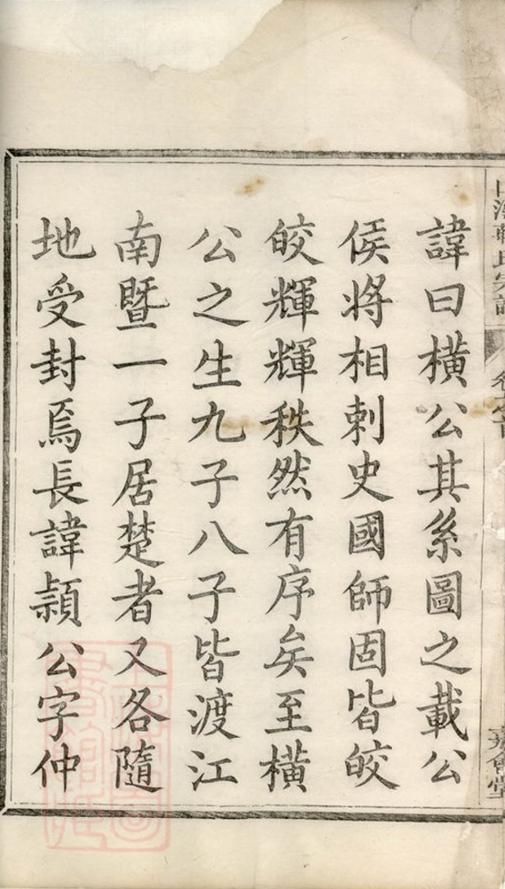 諱曰橫公其系圖之載公
侯將相刺史國師固皆皎
皎輝輝秩然有序矣至橫
公之生九子八子皆渡江
南暨一子居楚者又各隨
地受封焉長諱頴公字仲
氏宗譜
會堂